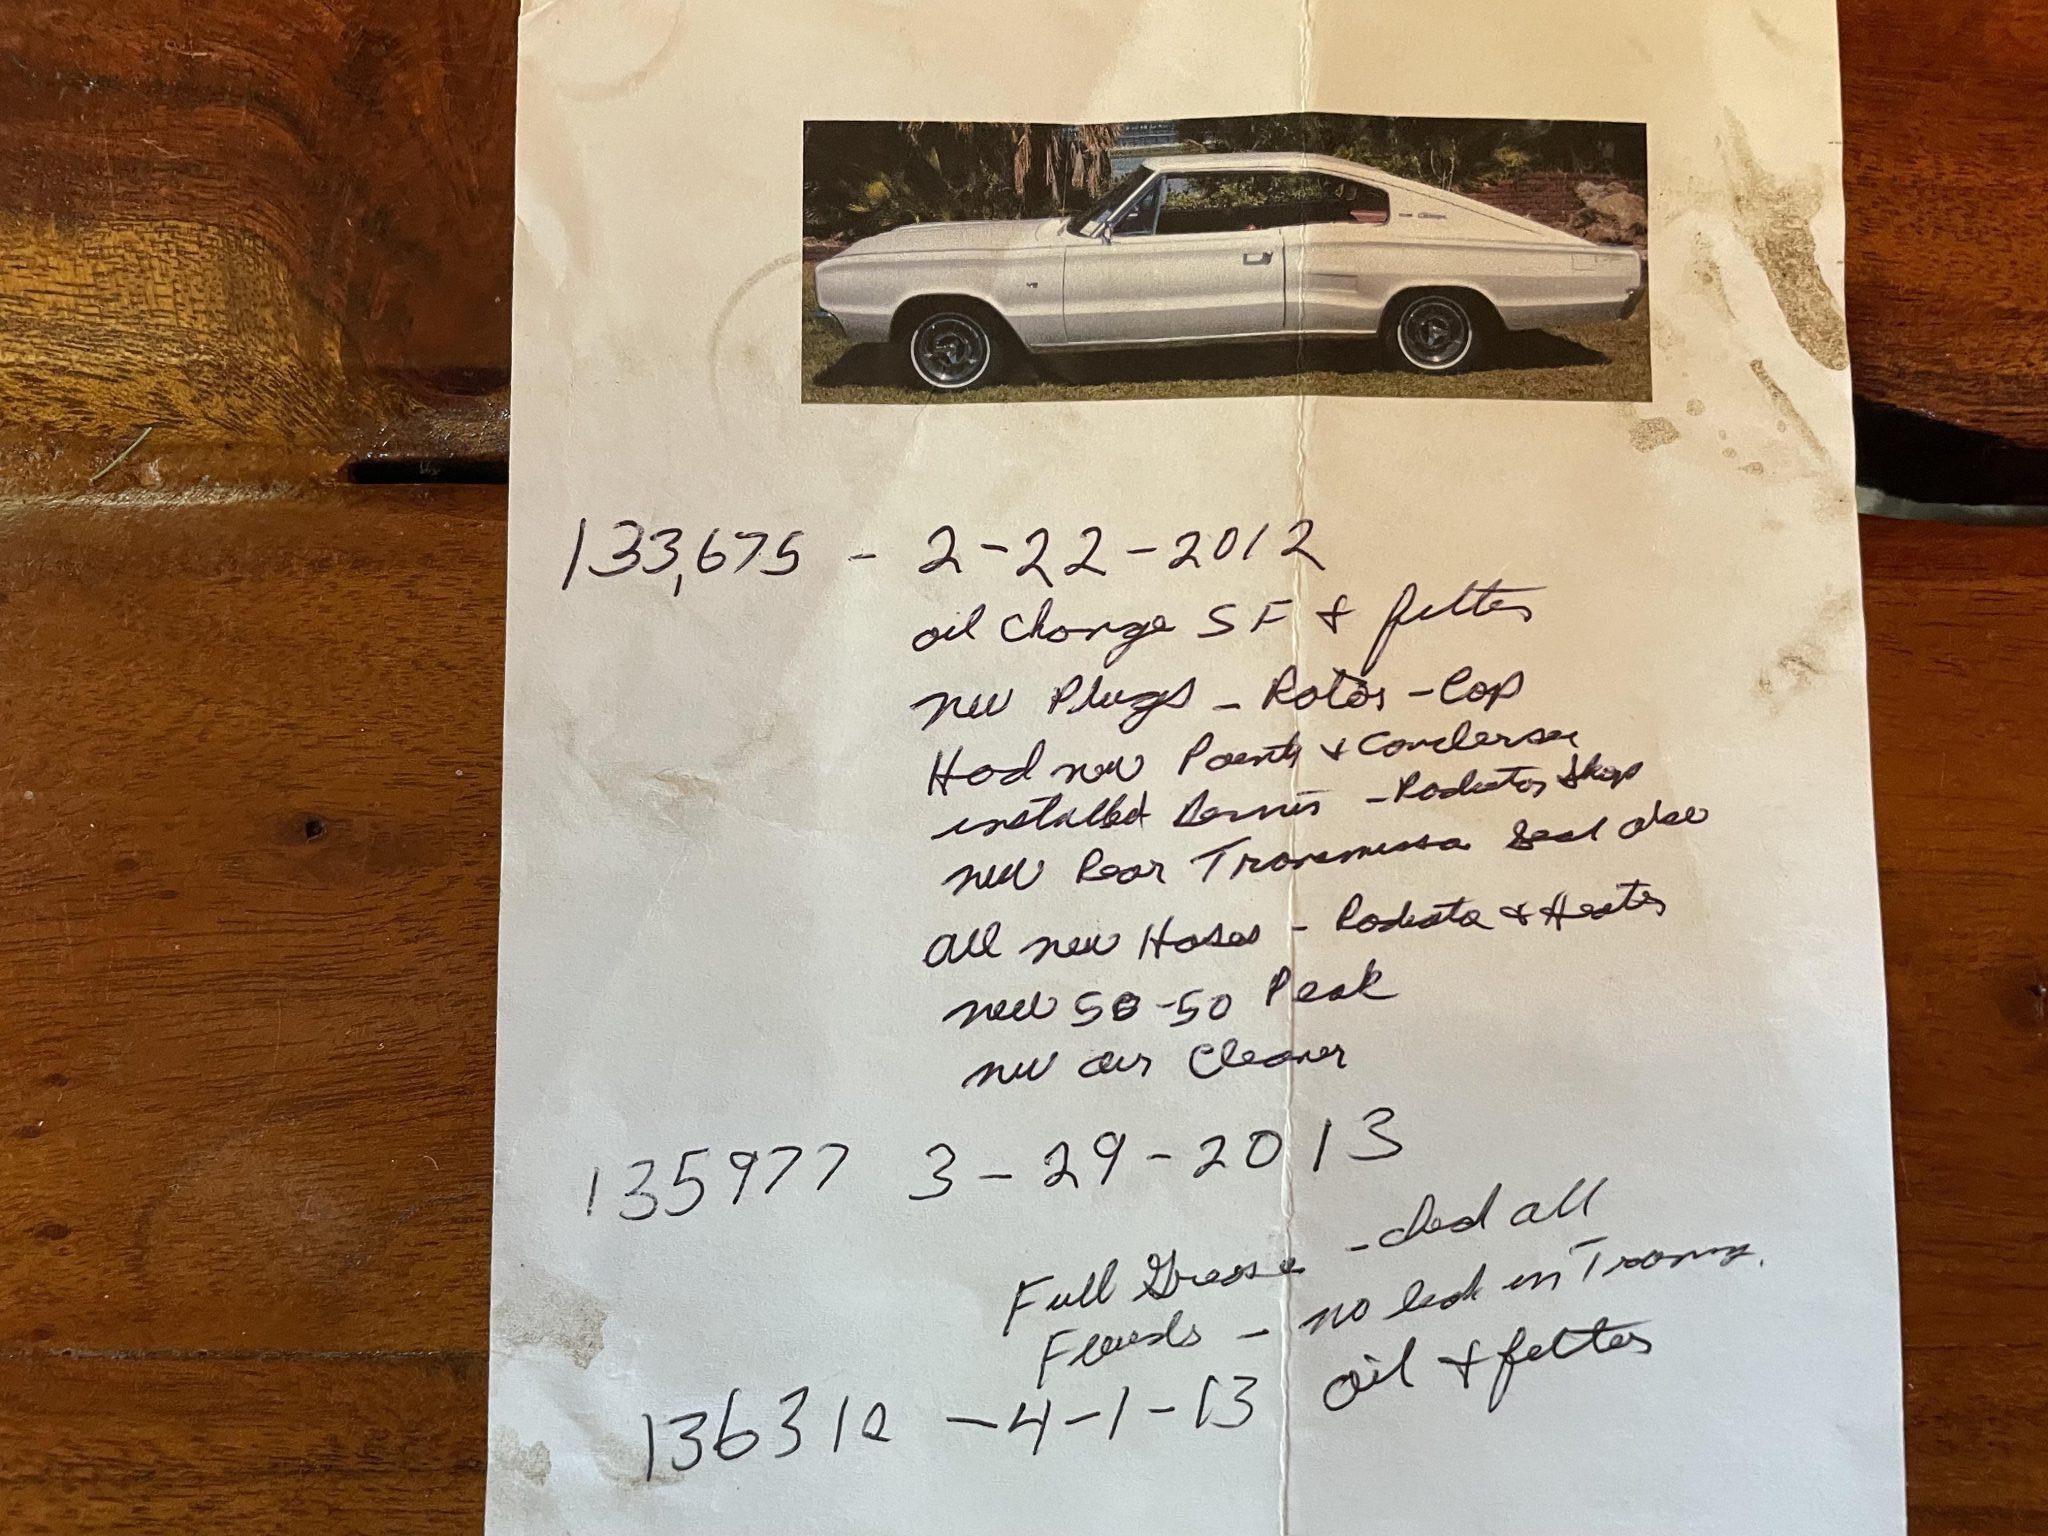 133,675 - 2-22-2012
oil change SF & filter
new Plugs - Rotor - Cap
Had new Points & Condenser
installed Dennis - Radiator Shop
new Rear Transmission Seal also
All new Hoses - Radiator & Heater
new 50-50 Peak
new air Cleaner
135977 3-29-2013
Full Grease - all
Fluids - no leak in Trans.
136310 - 4-1-13 oil & filter